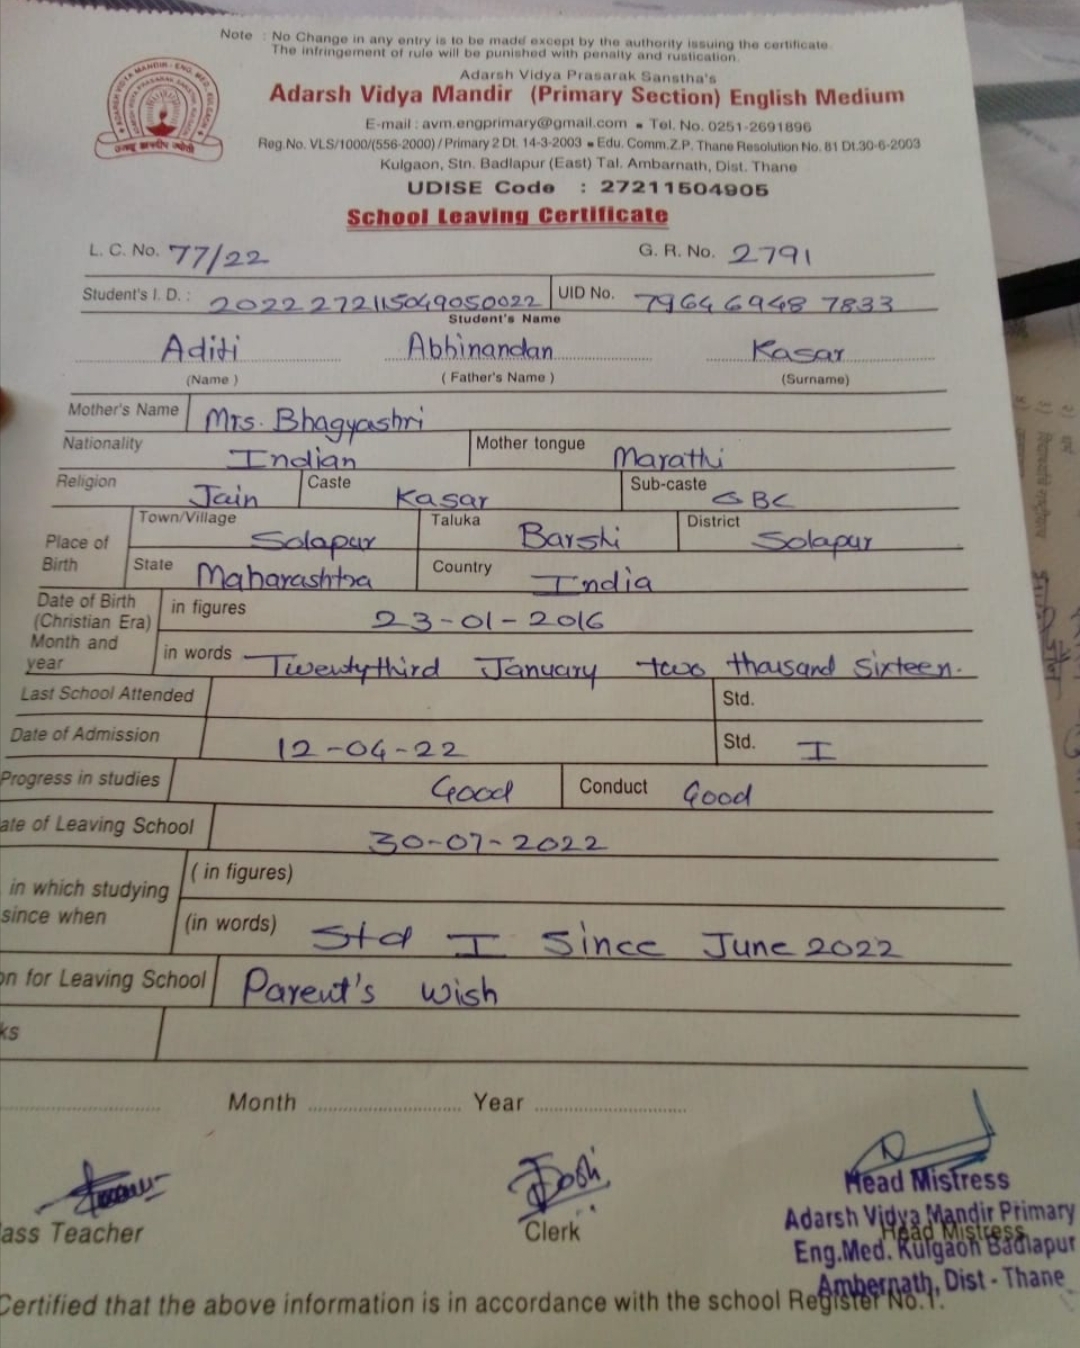 Note : No Change in any entry is to be made except by the authority issuing the certificate.
The infringement of rule will be punished with penalty and rustication.
Adarsh Vidya Prasarak Sanstha's
Adarsh Vidya Mandir (Primary Section) English Medium
E-mail : avm.engprimary@gmail.com • Tel. No. 0251-2691896
Reg.No. VLS/1000/(556-2000) / Primary 2 Dt. 14-3-2003 • Edu. Comm.Z.P. Thane Resolution No. 81 Dt.30-6-2003
Kulgaon, Stn. Badlapur (East) Tal. Ambarnath, Dist. Thane
UDISE Code : 27211504905
School Leaving Certificate
L. C. No. 77/22 G. R. No. 2791
Student's I. D. : 2022272115049050022 UID No. 7964 6948 7833
Student's Name
Aditi Abhinandan Kasar
(Name) (Father's Name) (Surname)
Mother's Name Mrs. Bhagyashri
Nationality Indian Mother tongue Marathi
Religion Jain Caste Kasar Sub-caste OBC
Place of Birth Town/Village Solapur Taluka Barshi District Solapur
State Maharashtra Country India
Date of Birth (Christian Era) in figures 23-01-2016
Month and year in words Twentythird January two thousand sixteen.
Last School Attended Std.
Date of Admission 12-04-22 Std. I
Progress in studies Good Conduct Good
ate of Leaving School 30-07-2022
in which studying (in figures)
since when (in words) Std I Since June 2022
on for Leaving School Parent's wish
ks
Month Year
Joshi
ass Teacher Clerk Head Mistress
Head Mistress
Adarsh Vidya Mandir Primary
Eng.Med. Kulgaon Badlapur
Ambernath, Dist - Thane
Certified that the above information is in accordance with the school Register No.1.